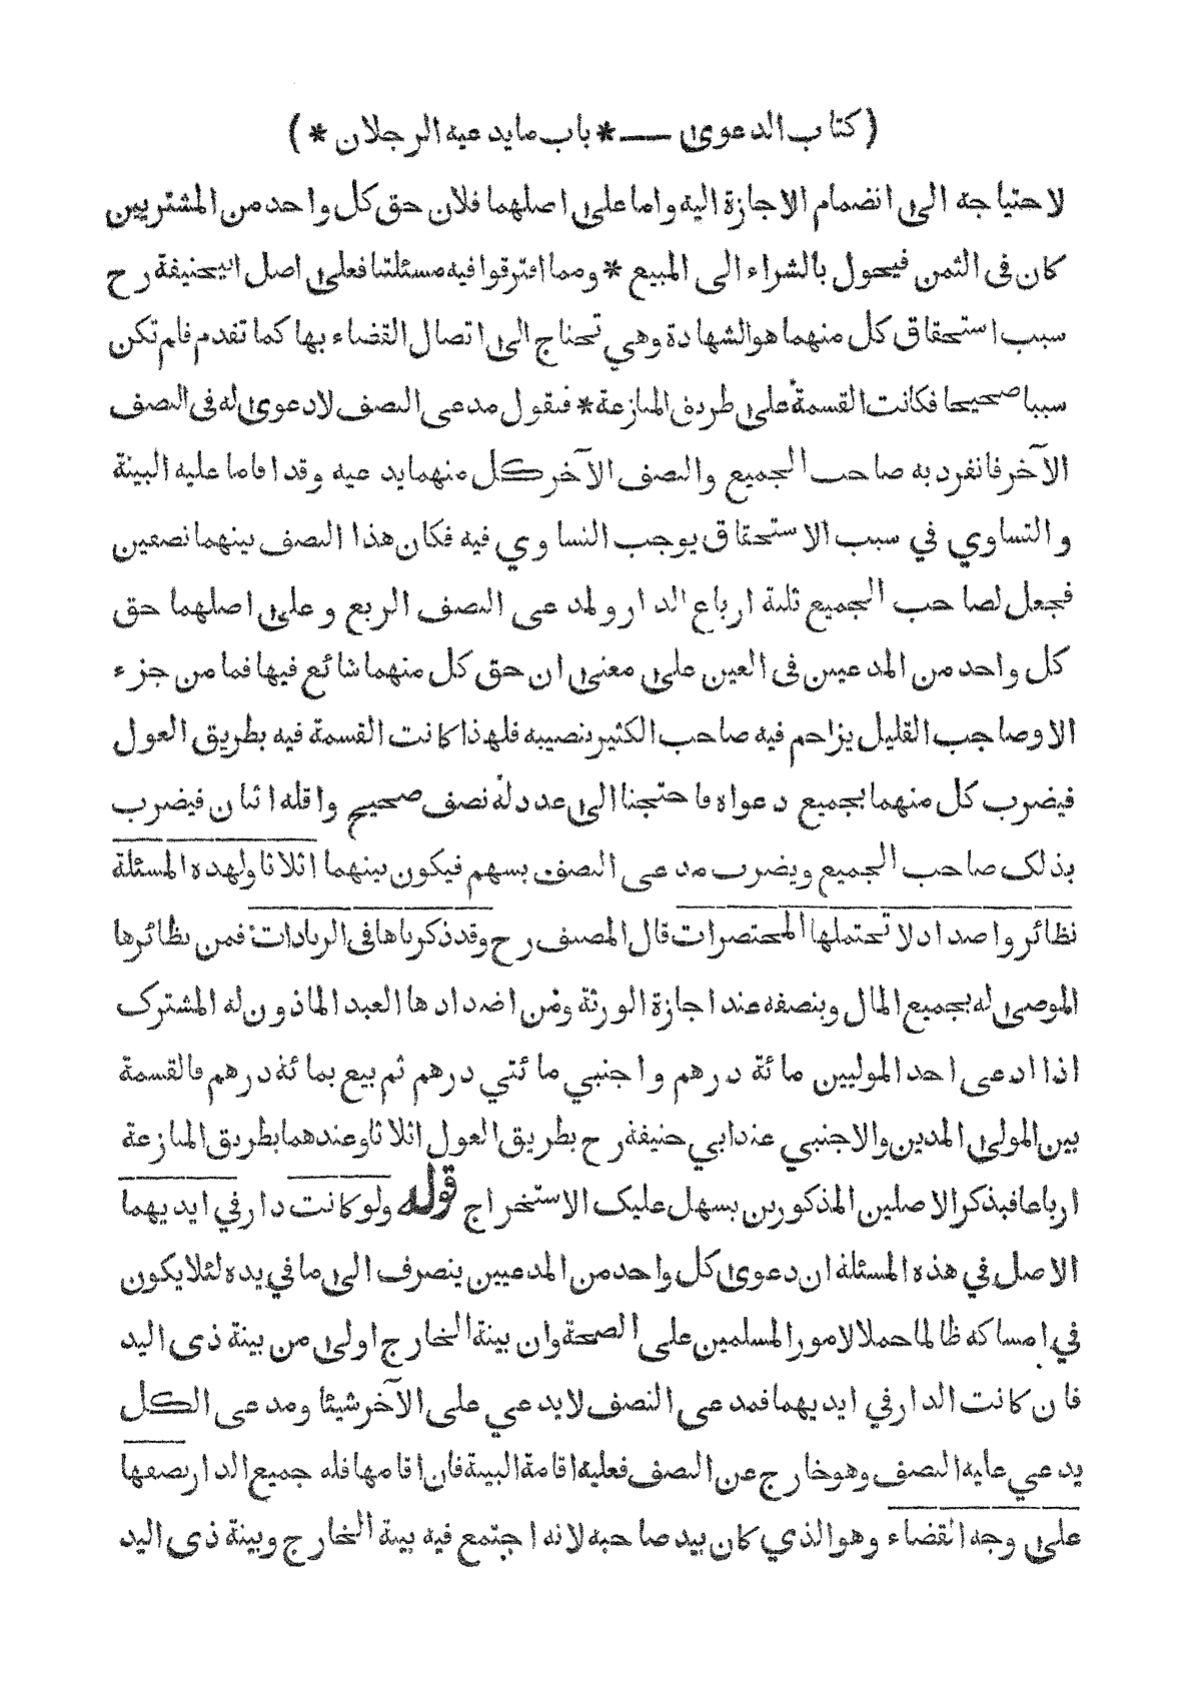 (كتاب الدعوى —* باب ما يدعيه الرجلان *)
لاحتياجه الى انضمام الاجازة اليه واما على اصلهما فلان حق كل واحد من المشتريين
كان فى الثمن فيحول بالشراء الى المبيع * ومما افترقوا فيه مسئلتنا فعلى اصل ابيحنيفة رح
سبب استحقاق كل منهما هو الشهادة وهي تحتاج الى اتصال القضاء بها كما تقدم فلم تكن
سببا صحيحا فكانت القسمة على طريق المنازعة * فنقول مدعى النصف لا دعوى له فى النصف
الآخر فانفرد به صاحب الجميع والنصف الآخر كل منهما يدعيه وقد اقاما عليه البينة
والتساوي في سبب الاستحقاق يوجب التساوي فيه فكان هذا النصف بينهما نصفين
فجعل لصاحب الجميع ثلثة ارباع الدار ولمدعى النصف الربع وعلى اصلهما حق
كل واحد من المدعيين فى العين على معنى ان حق كل منهما شائع فيها فما من جزء
الا وصاحب القليل يزاحم فيه صاحب الكثير بنصيبه فلهذا كانت القسمة فيه بطريق العول
فيضرب كل منهما بجميع دعواه فاحتجنا الى عدد له نصف صحيح واقله اثنان فيضرب
بذلك صاحب الجميع ويضرب مدعى النصف بسهم فيكون بينهما اثلاثا ولهذه المسئلة
نظائر واضداد لا تحتملها المختصرات قال المصنف رح وقد ذكرناها فى الزيادات فمن نظائرها
الموصى له بجميع المال وبنصفه عند اجازة الورثة ومن اضدادها العبد الماذون له المشترك
اذا ادعى احد الموليين مائة درهم واجنبي مائتي درهم ثم بيع بمائة درهم فالقسمة
بين المولى المدين والاجنبي عند ابي حنيفة رح بطريق العول اثلاثا وعندهما بطريق المنازعة
ارباعا فبذكر الاصلين المذكورين يسهل عليك الاستخراج قوله ولو كانت دار في ايديهما
الاصل في هذه المسئلة ان دعوى كل واحد من المدعيين ينصرف الى ما في يده لئلا يكون
في امساكه ظالما حملا لامور المسلمين على الصحة وان بينة الخارج اولى من بينة ذى اليد
فان كانت الدار في ايديهما فمدعى النصف لا يدعي على الآخر شيئا ومدعى الكل
يدعي عليه النصف وهو خارج عن النصف فعليه اقامة البينة فان اقامها فله جميع الدار نصفها
على وجه القضاء وهو الذي كان بيد صاحبه لانه اجتمع فيه بينة الخارج وبينة ذى اليد